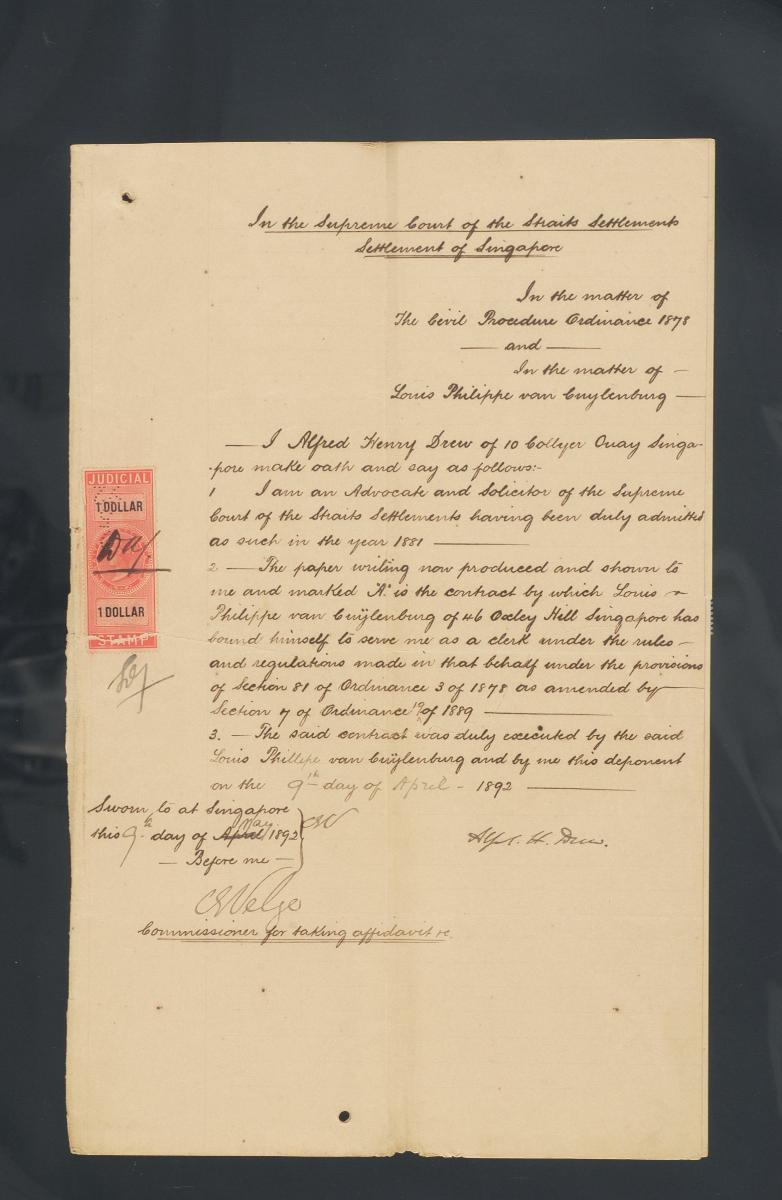 In the Supreme Court of the Straits Settlements
Settlement of Singapore
In the matter of
The Civil Procedure Ordinance 1878
— and —
In the matter of —
Louis Philippe van Cuylenburg —
— I Alfred Henry Drew of 10 Collyer Quay Singa-
-pore make oath and say as follows:-
1 I am an Advocate and Solicitor of the Supreme
Court of the Straits Settlements having been duly admitted
as such in the year 1881 —
2 — The paper writing now produced and shown to
me and marked "A" is the contract by which Louis
Philippe van Cuÿlenburg of 46 Oxley Hill Singapore has
bound himself to serve me as a clerk under the rules —
and regulations made in that behalf under the provisions
of Section 81 of Ordinance 3 of 1878 as amended by —
Section 7 of Ordinance of 1889 —
3. — The said contract was duly executed by the said
Louis Phillipe van Cuÿlenburg and by me this deponent
on the 9th day of April - 1892 —
JUDICIAL
1 DOLLAR
1 DOLLAR
STAMP
Sworn to at Singapore
this 9th day of April May 1892
— Before me —
Alf. H. Drew.
Commissioner for taking affidavit &c.